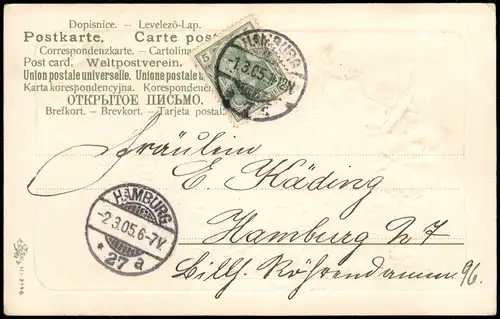 Dopisnice. – Levelezö-Lap.
Postkarte. – Carte pos
Correspondenzkarte. – Cartolina
Post card. – Weltpostverein.
Union postale universelle. Unione postale u
Karta korespondencyjna. Korespondenčn
ОТКРЫТОЕ ПИСЬМО.
Brefkort. – Brevkort. – Tarjeta postal.
5
HAMBURG
-1.3.05.
Fräulein
E. Häding
Hamburg 27
Billh. Röhrendamm 96.
HAMBURG
-2.3.05.6-7V.
* 27 a
N: 2146